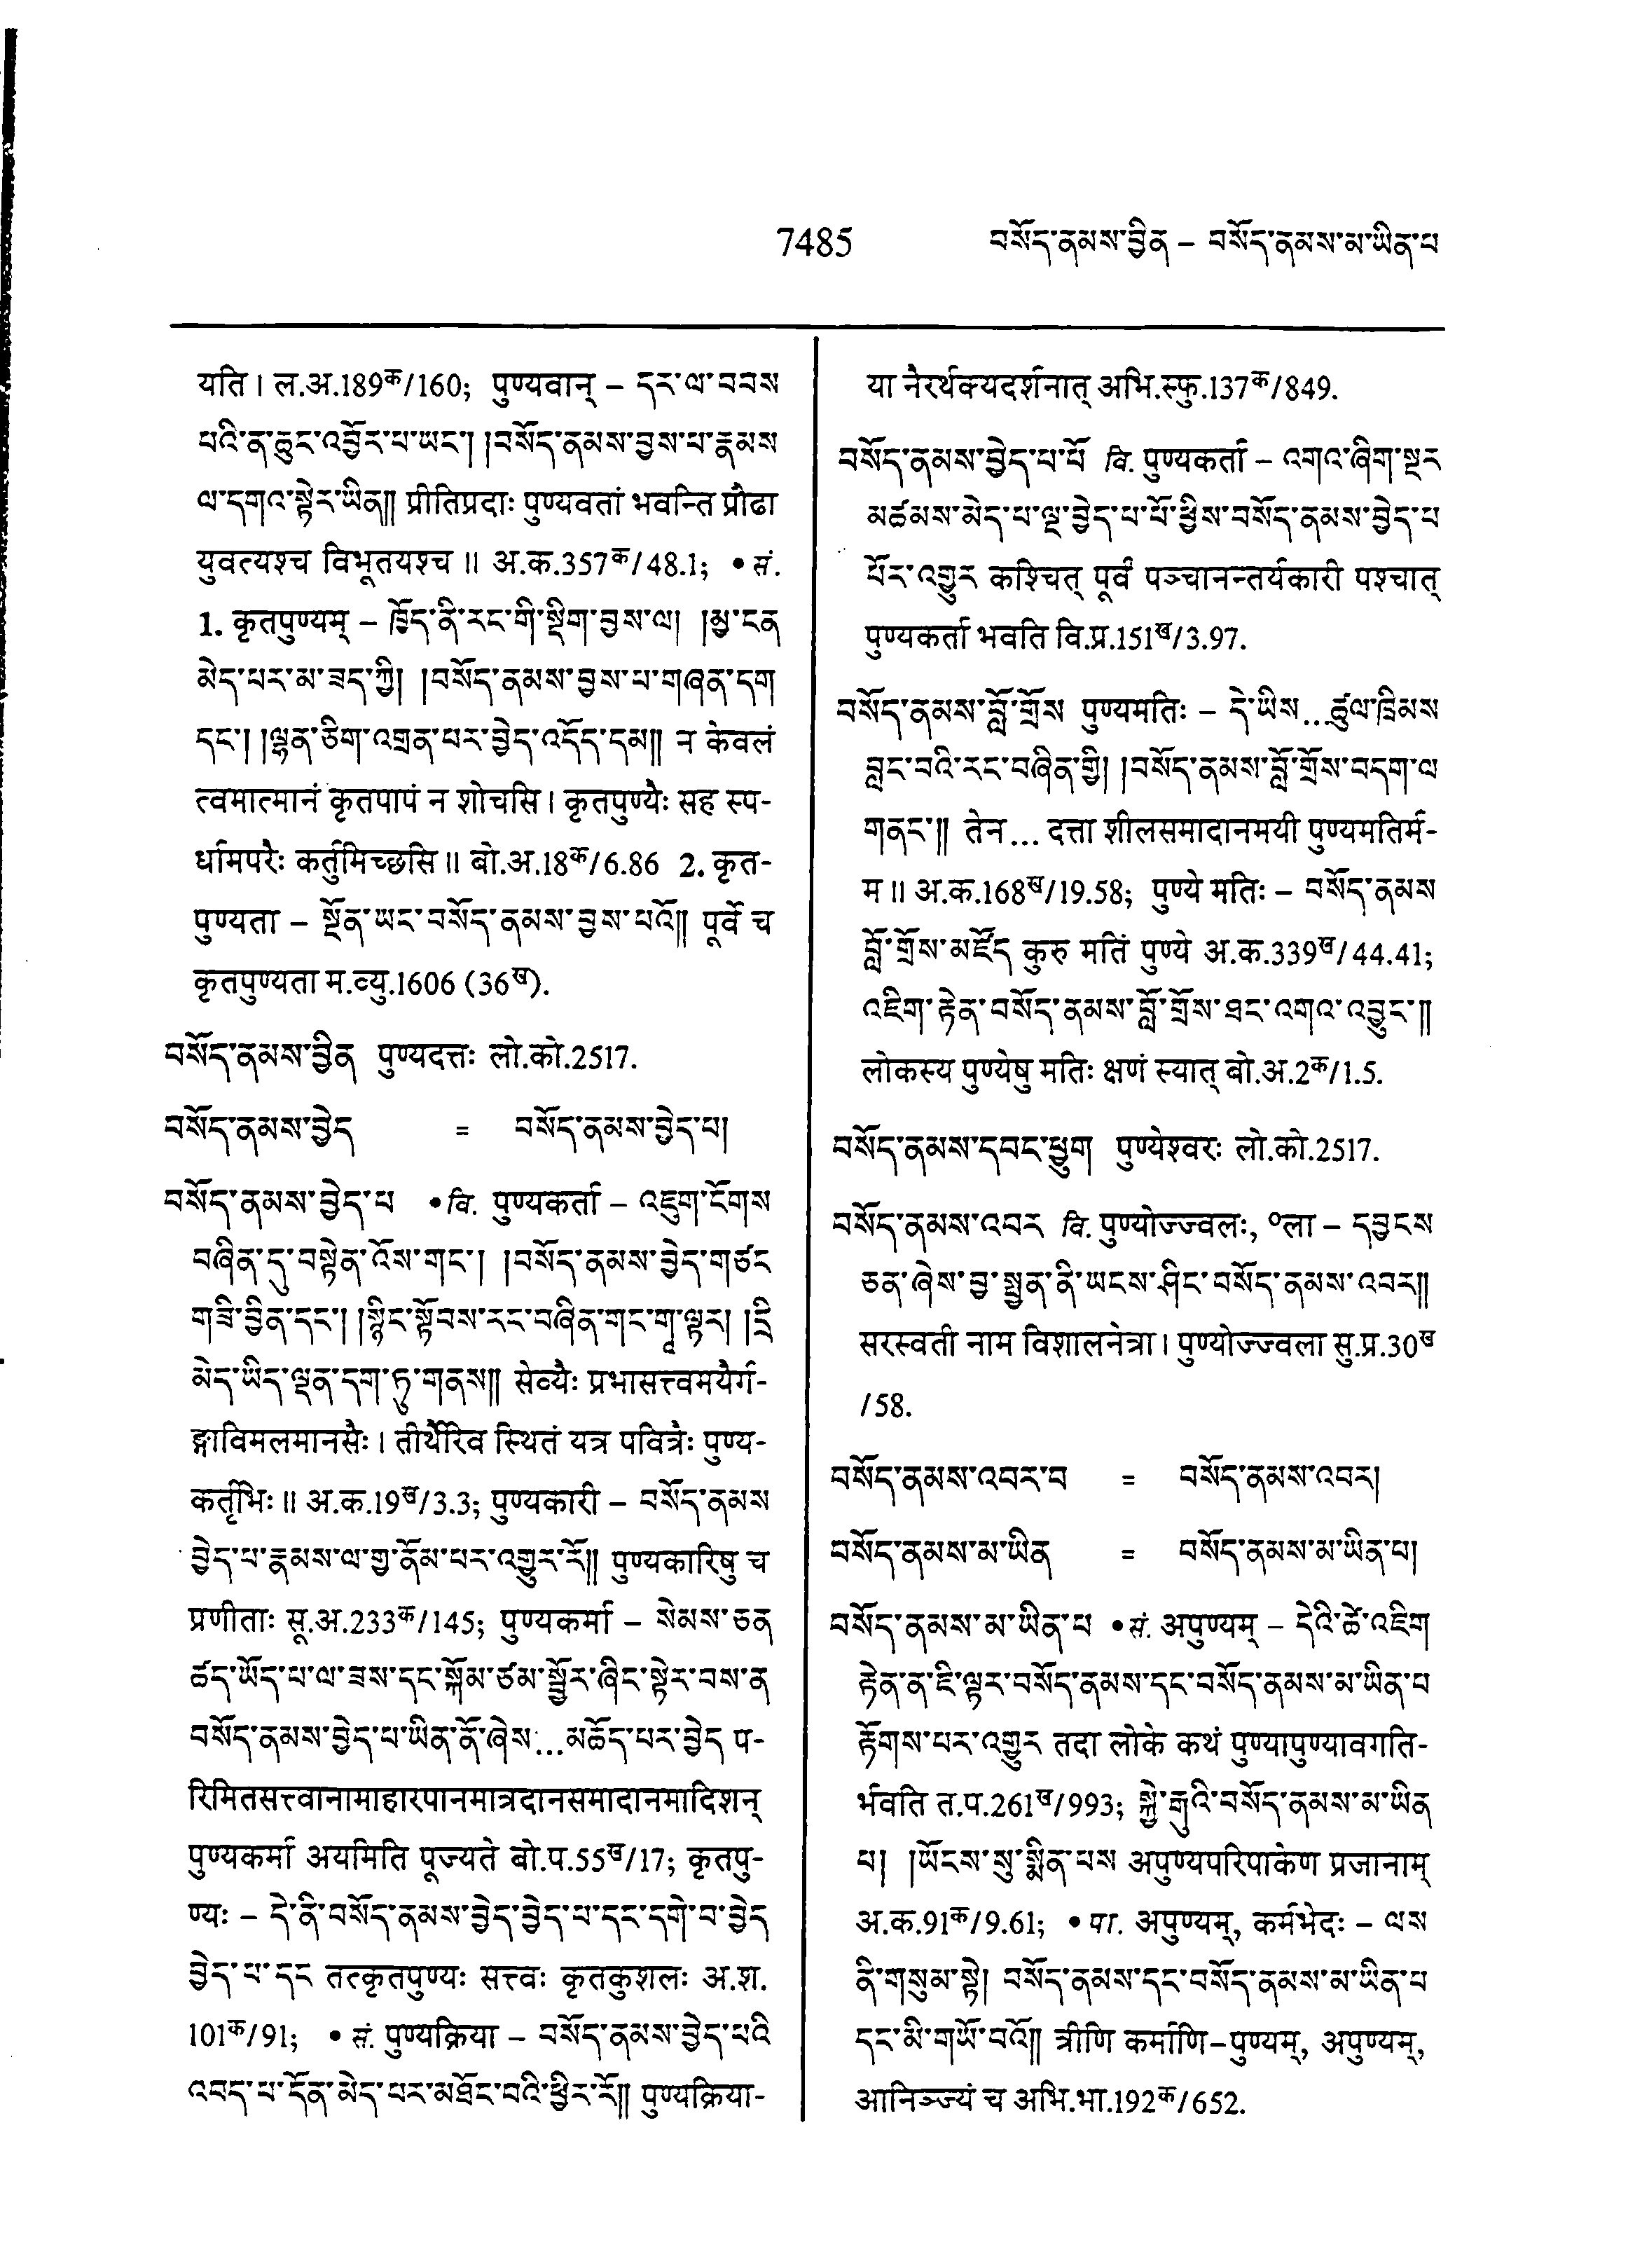 7485 བསོད་ནམས་བྱིན – བསོད་ནམས་མ་ཡིན་པ
यति । ल.अ.189क/160; पुण्यवान् – དར་ལ་བབས
པའི་ན་ཆུང་འབྱོར་པ་ཡང་། །བསོད་ནམས་བྱས་པ་རྣམས
ལ་དགའ་སྟེར་ཡིན།། प्रीतिप्रदाः पुण्यवतां भवन्ति प्रौढा
युवत्यश्च विभूतयश्च ॥ अ.क.357क/48.1; • सं.
1. कृतपुण्यम् – ཁྱོད་ནི་རང་གི་སྡིག་བྱས་ལ། །མྱ་ངན
མེད་པར་མ་ཟད་ཀྱི། །བསོད་ནམས་བྱས་པ་གཞན་དག
དང་། །ལྷན་ཅིག་འགྲན་པར་བྱེད་འདོད་དམ།། न केवलं
त्वमात्मानं कृतपापं न शोचसि । कृतपुण्यैः सह स्प-
र्धामपरैः कर्तुमिच्छसि ॥ बो.अ.18क/6.86 2. कृत-
पुण्यता – སྔོན་ཡང་བསོད་ནམས་བྱས་པའོ།། पूर्वे च
कृतपुण्यता म.व्यु.1606 (36ख).
བསོད་ནམས་བྱིན पुण्यदत्तः लो.को.2517.
བསོད་ནམས་བྱེད = བསོད་ནམས་བྱེད་པ།
བསོད་ནམས་བྱེད་པ • वि. पुण्यकर्ता – འཇུག་ངོགས
བཞིན་དུ་བསྟེན་འོས་གང་། །བསོད་ནམས་བྱེད་གཙང
གཟི་བྱིན་དང་། །སྙིང་སྟོབས་རང་བཞིན་གང་གཱ་ལྟར། །དྲི
མེད་ཡིད་ལྡན་དག་ཏུ་གནས།། सेव्यैः प्रभासत्त्वमयैर्ग-
ङ्गाविमलमानसैः । तीर्थैरिव स्थितं यत्र पवित्रैः पुण्य-
कर्तृभिः ॥ अ.क.19ख/3.3; पुण्यकारी – བསོད་ནམས
བྱེད་པ་རྣམས་ལ་གྱ་ནོམ་པར་འགྱུར་རོ།། पुण्यकारिषु च
प्रणीताः सू.अ.233क/145; पुण्यकर्मा – སེམས་ཅན
ཚད་ཡོད་པ་ལ་ཟས་དང་སྐོམ་ཙམ་སྦྱོར་ཞིང་སྟེར་བས་ན
བསོད་ནམས་བྱེད་པ་ཡིན་ནོ་ཞེས...མཆོད་པར་བྱེད प-
रिमितसत्त्वानामाहारपानमात्रदानसमादानमादिशन्
पुण्यकर्मा अयमिति पूज्यते बो.प.55ख/17; कृतपु-
ण्यः – དེ་ནི་བསོད་ནམས་བྱེད་བྱེད་པ་དང་དགེ་བ་བྱེད
བྱེད་པ་དང तत्कृतपुण्यः सत्त्वः कृतकुशलः अ.श.
101क/91; • सं. पुण्यक्रिया – བསོད་ནམས་བྱེད་པའི
འབད་པ་དོན་མེད་པར་མཐོང་བའི་ཕྱིར་རོ།། पुण्यक्रिया-
या नैरर्थक्यदर्शनात् अभि.स्फु.137क/849.
བསོད་ནམས་བྱེད་པ་པོ वि. पुण्यकर्ता – འགའ་ཞིག་སྔར
མཚམས་མེད་པ་ལྔ་བྱེད་པ་པོ་ཕྱིས་བསོད་ནམས་བྱེད་པ
པོར་འགྱུར कश्चित् पूर्वं पञ्चानन्तर्यकारी पश्चात्
पुण्यकर्ता भवति वि.प्र.151ख/3.97.
བསོད་ནམས་བློ་གྲོས पुण्यमतिः – དེ་ཡིས...ཚུལ་ཁྲིམས
བླང་བའི་རང་བཞིན་གྱི། །བསོད་ནམས་བློ་གྲོས་བདག་ལ
གནང་།། तेन... दत्ता शीलसमादानमयी पुण्यमतिर्म-
म ॥ अ.क.168ख/19.58; पुण्ये मतिः – བསོད་ནམས
བློ་གྲོས་མཛོད कुरु मतिं पुण्ये अ.क.339ख/44.41;
འཇིག་རྟེན་བསོད་ནམས་བློ་གྲོས་ཐང་འགའ་འབྱུང་།།
लोकस्य पुण्येषु मतिः क्षणं स्यात् बो.अ.2क/1.5.
བསོད་ནམས་དབང་ཕྱུག पुण्येश्वरः लो.को.2517.
བསོད་ནམས་འབར वि. पुण्योज्ज्वलः, ०ला – དབྱངས
ཅན་ཞེས་བྱ་སྤྱན་ནི་ཡངས་ཤིང་བསོད་ནམས་འབར།།
सरस्वती नाम विशालनेत्रा । पुण्योज्ज्वला सु.प्र.30ख
/58.
བསོད་ནམས་འབར་བ = བསོད་ནམས་འབར།
བསོད་ནམས་མ་ཡིན = བསོད་ནམས་མ་ཡིན་པ།
བསོད་ནམས་མ་ཡིན་པ • सं. अपुण्यम् – དེའི་ཚེ་འཇིག
རྟེན་ན་ཇི་ལྟར་བསོད་ནམས་དང་བསོད་ནམས་མ་ཡིན་པ
རྟོགས་པར་འགྱུར तदा लोके कथं पुण्यापुण्यावगति-
र्भवति त.प.261ख/993; སྐྱེ་རྒུའི་བསོད་ནམས་མ་ཡིན
པ། །ཡོངས་སུ་སྨིན་པས अपुण्यपरिपाकेण प्रजानाम्
अ.क.91क/9.61; • पा. अपुण्यम्, कर्मभेदः – ལས
ནི་གསུམ་སྟེ། བསོད་ནམས་དང་བསོད་ནམས་མ་ཡིན་པ
དང་མི་གཡོ་བའོ།། त्रीणि कर्माणि–पुण्यम्, अपुण्यम्,
आनिञ्ज्यं च अभि.भा.192क/652.